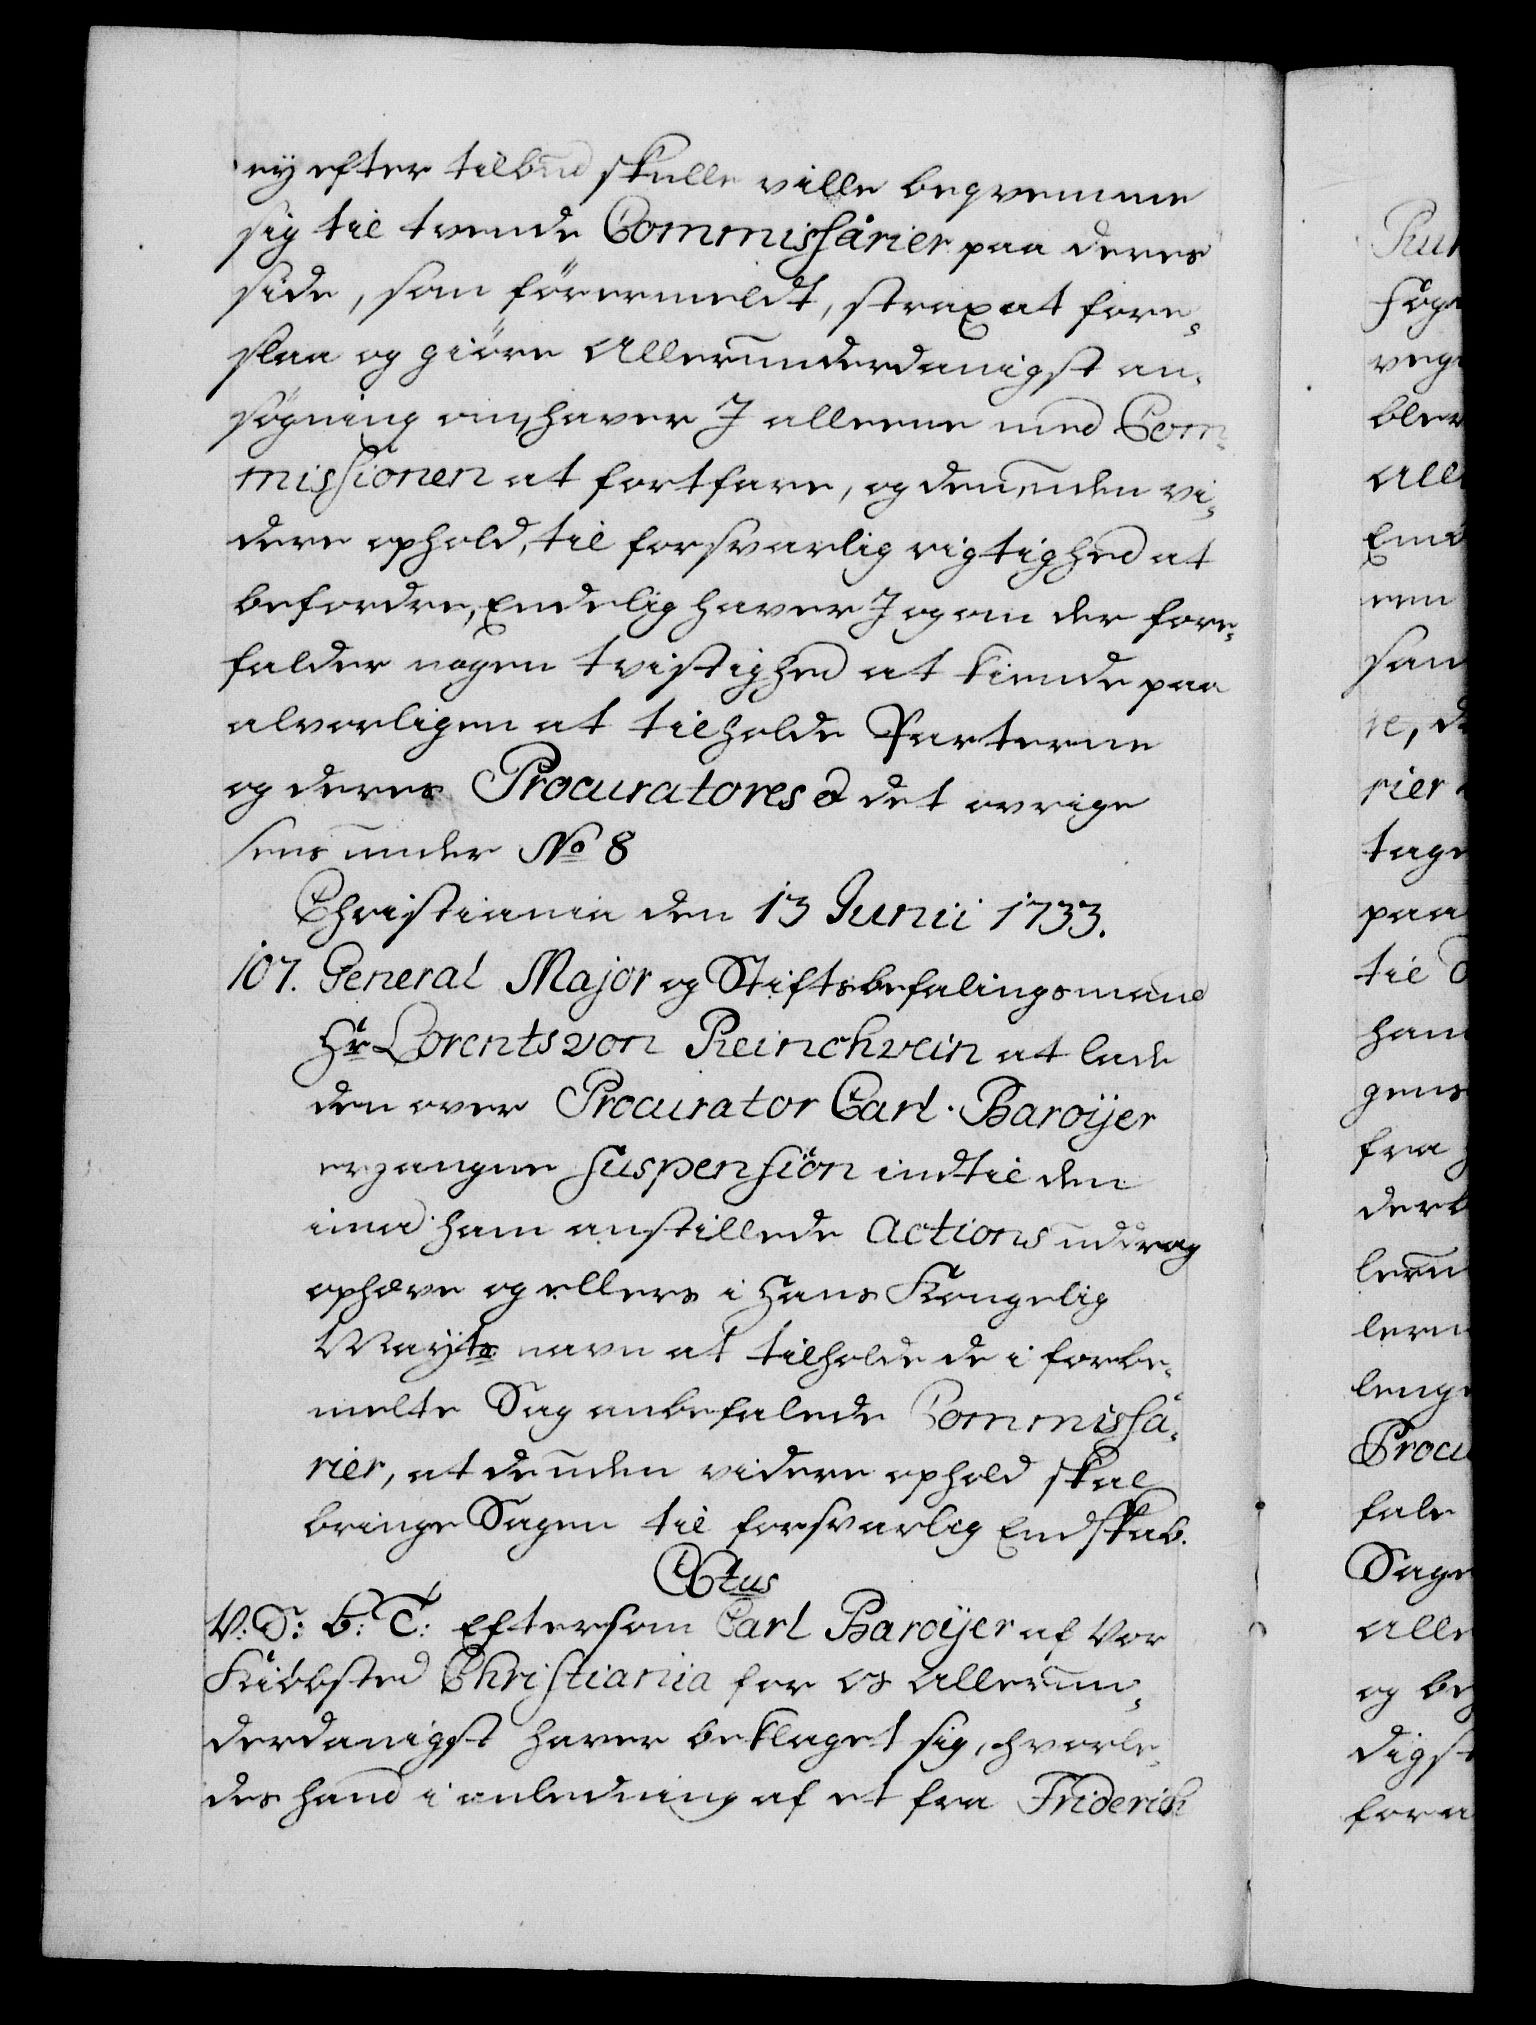 ey efter tilbud skulle ville beqvemme
sig til tvende Commissarier paa deres
side, som förermeldt, strax at fore-
slaa og giöre Allerunderdanigst an-
søgning om, haver I alleene med Com-
missionen at fortfare, og den, uden vi-
dere ophold, til forsvarlig rigtighed at
befordre, Endelig haver I og om der fore-
falder nogen tvistighed at kiende paa
alvorligen at tilholde Parterne
og deres Procuratores &c det øvrige
sees under No 8
Christiania den 13 Junii 1733.
107. General Major og Stiftsbefalingsmand
Hr Lorents von Reinchvein at lade
den over Procurator Carl Baroÿer
ergangne Suspension indtil den
imod ham anstillede Actions uddrag
ophæve og ellers i Hans Kongelig
Mayts navn at tilholde de i forbe-
melte Sag anbefalede Commissa-
rier, at de uden videre ophold skal
bringe Sagen til forsvarlig Endskab.
Ctus
V: S: G: T: Eftersom Carl Baroÿer af Vor
Kiöbsted Christiania for os Allerun-
derdanigst haver beklaget sig, hvorle-
des hand i anledning af et fra Friderich